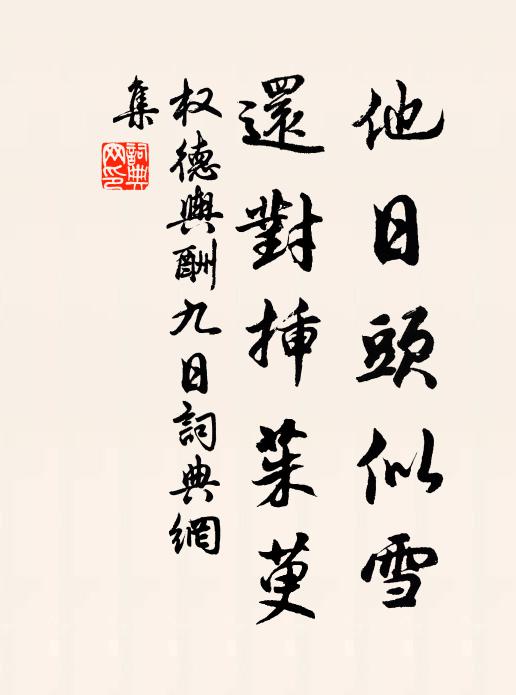 他日頭似雪
還對揷茱萸
权德輿酬九日詞典網
集
詞典網印